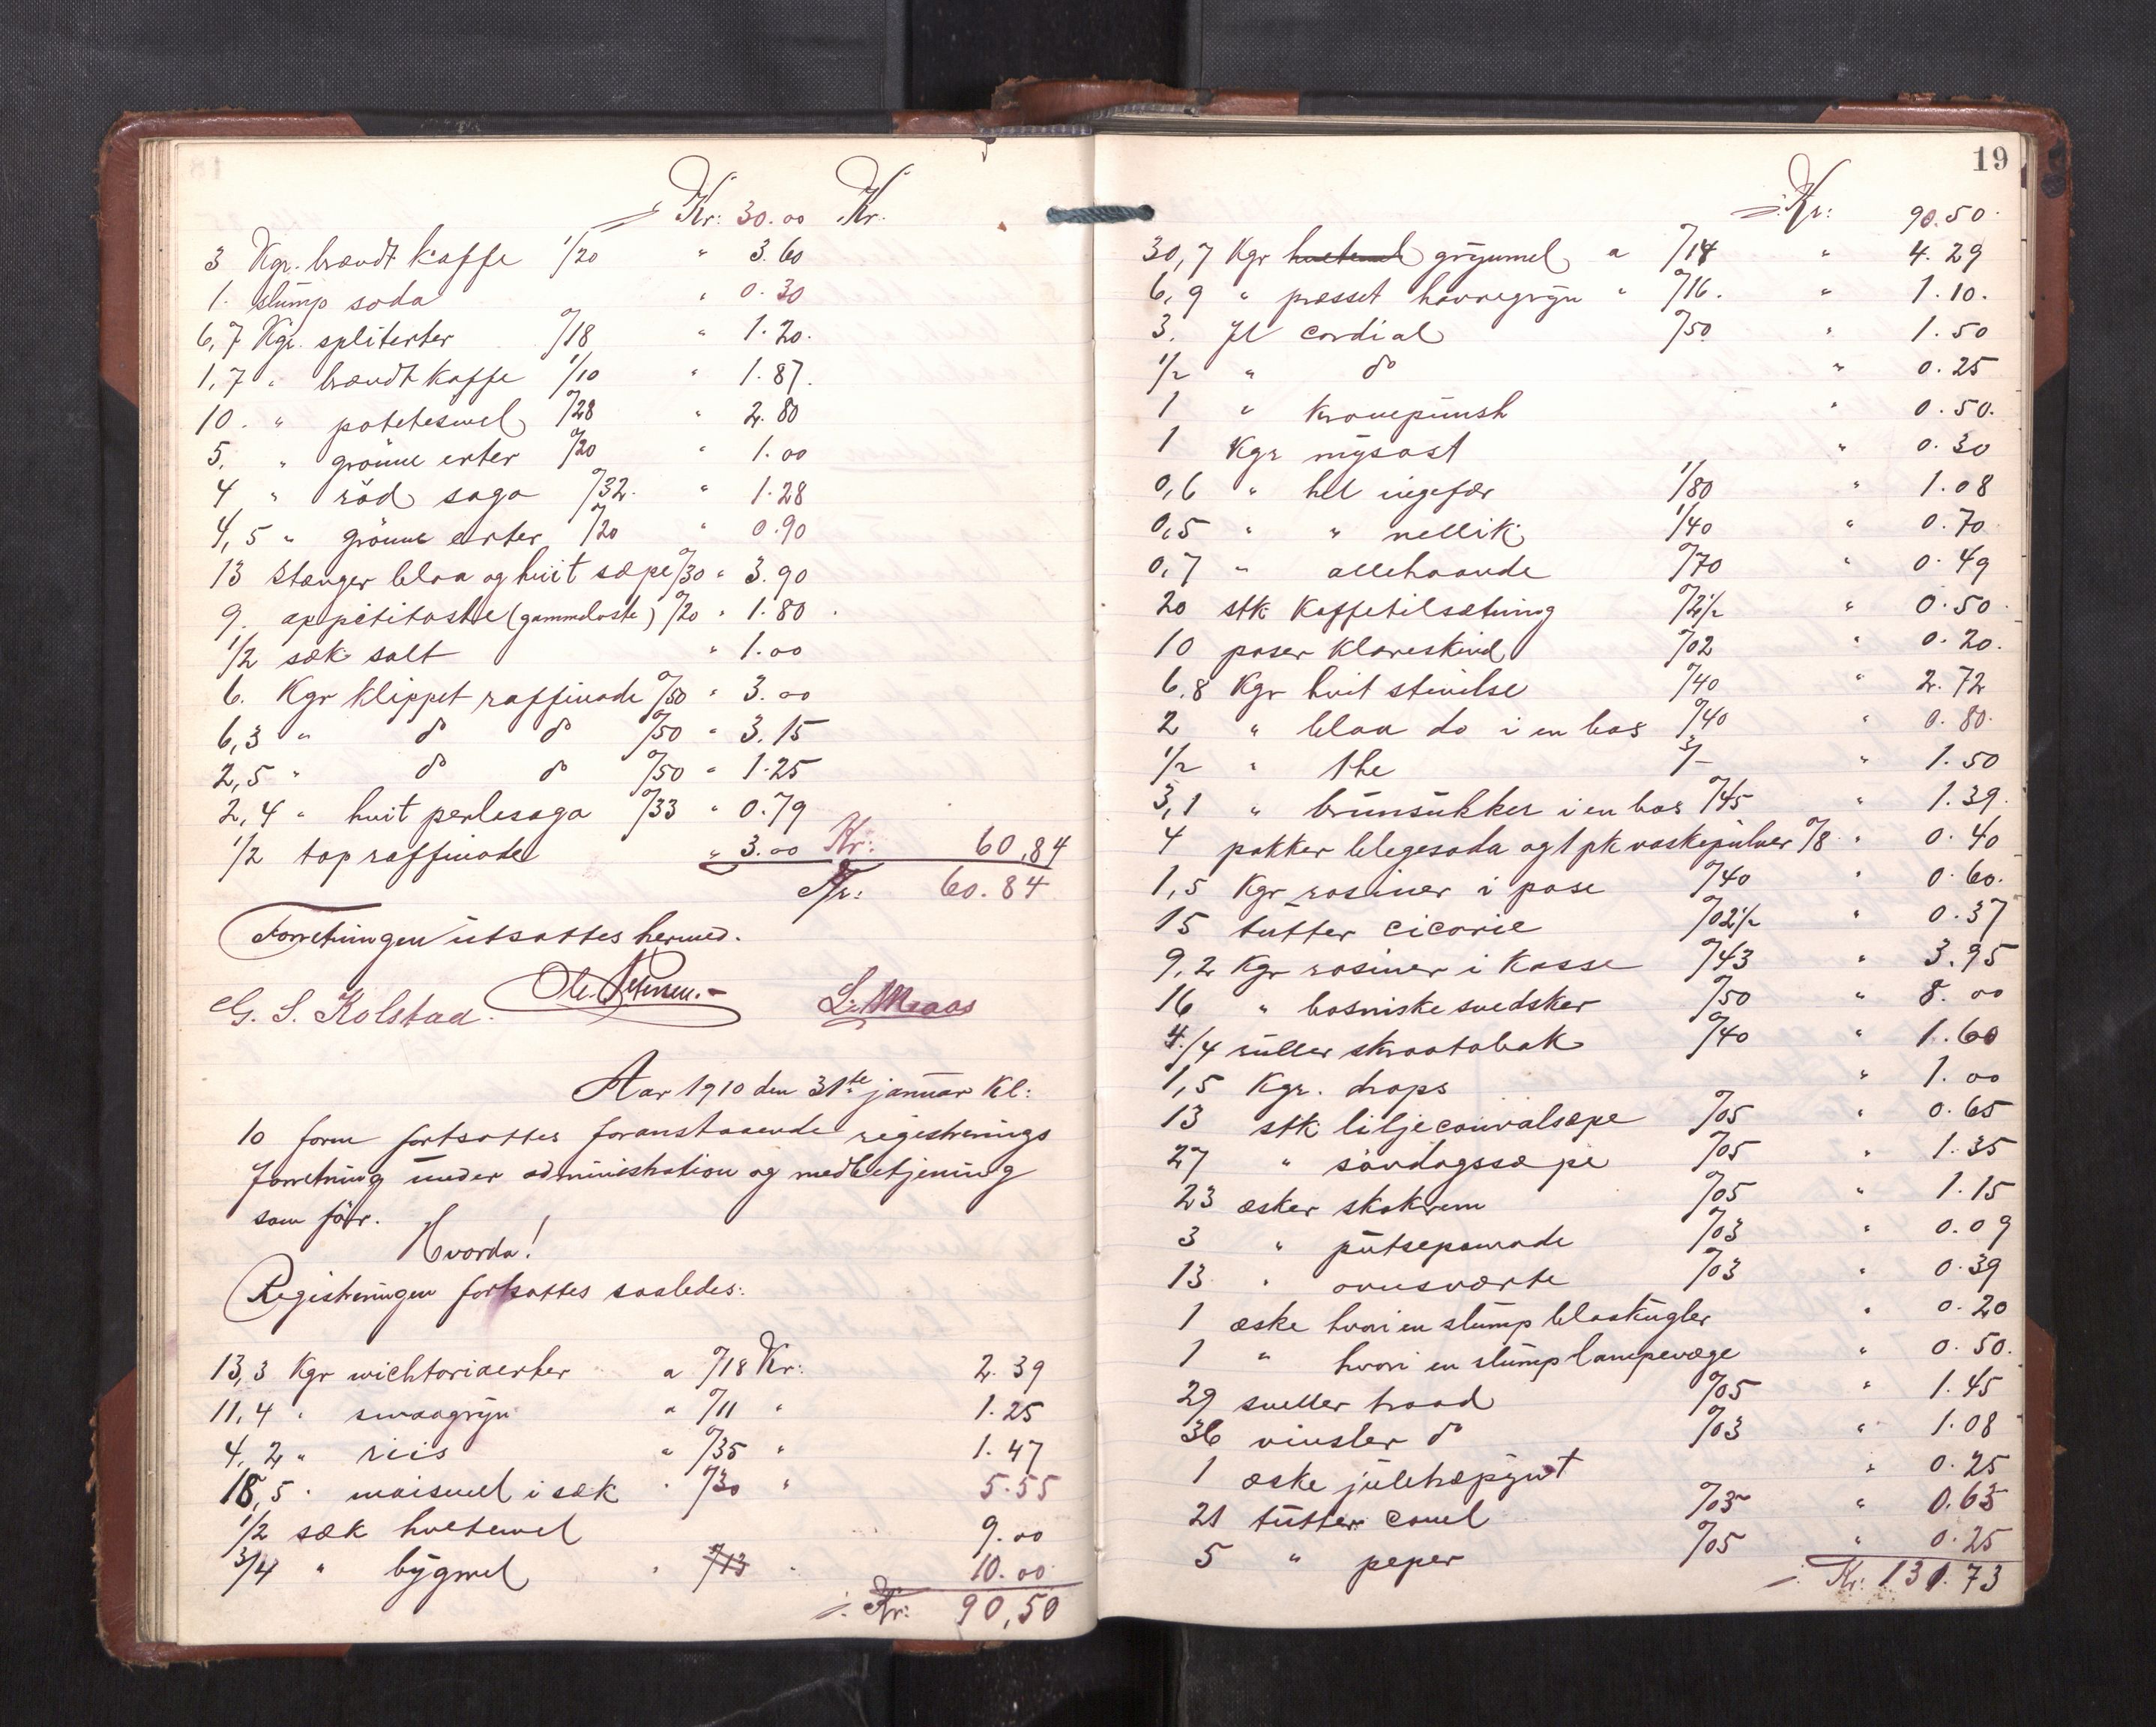 Kr: 30.00 Kr.
3 Kgr. brændt kaffe 1/20 " 3.60
1. slump soda " 0.30
6,7 Kgr. spliterter 0/18 " 1.20.
1,7 " brændt kaffe 1/10 " 1.87.
10. " potetesmel 0/28 " 2.80
5. " grönne erter 0/20 " 1.00
4 " röd sago 0/32. " 1.28
4,5 " grönne erter 0/20 " 0.90
13 Stænger blaa og hvit sæpe 0/30 " 3.90
9. appetitoste (gammeloste) 0/20 " 1.80.
1/2 sæk salt " 1.00
6. Kgr klippet raffinade 0/50 " 3.00
6,3 " do do 0/50 " 3.15
2,5 " do do 0/50 " 1.25
2,4 " hvit perlesago 0/33 " 0.79
1/2 top raffinade " 3.00 Kr: 60,84
Kr: 60.84
Forretningen utsattes hermed.
G. S. Kolstad. L. Maas
Aar 1910 den 31te januar kl:
10 form fortsattes foranstaaende registrerings
forretning under administration og medbetjening
som för.
Hvorda!
Registreringen fortsattes saaledes:
13,3 Kgr wichtoriaerter a 0/18 Kr: 2.39
11,4 " smaagryn " 0/11 " 1.25
4,2 " riis " 0/35 " 1.47
18,5 " maismel i sæk " 0/30 " 5.55
1/2 sæk hvetemel 9.00
3/4 " bygmel " 0/13 " 10.00
Kr: 90,50
19
Kr: 90.50.
30,7 Kgr hvetemel grynmel a 0/14 " 4.29
6,9 " presset havregryn " 0/16. " 1.10.
3. fl cordial 0/50 " 1.50
1/2 " do " 0.25
1 " Kronepunsh " 0.50.
1 Kgr mysost " 0.30
0,6 " hel ingefær 1/80 " 1.08
0,5 " " nellik 1/40 " 0.70
0,7 " allehaande 0/70 " 0.49
20 stk Kaffetilsætning 0/2 1/2 " 0.50.
10 poser klareskind 0/02 " 0.20.
6,8 Kgr hvit stivilse 0/40 " 2.72
2 " blaa do i en kas 0/40 " 0.80.
1/2 " the 3/- " 1.50
3,1 " brunsukker i en kas 0/45 " 1.39.
4 pakker blegesoda og 1 pk vaskepulver 0/8 " 0.40
1,5 Kgr rosiner i pose 0/40 " 0.60.
15 tutter cicorie 0/02 1/2 " 0.37
9,2 Kgr rosiner i Kasse 0/43 " 3.95
16 " bosniske svedsker 0/50 " 8.00
4/4 ruller skraatobak 0/40 " 1.60
1,5 Kgr. drops " 1.00
13 stk liljeconvalsæpe 0/05 " 0.65
27 " söndagssæpe 0/05 " 1.35
23 æsker skokrem 0/05 " 1.15
3 " putsepomade 0/03 " 0.09
13 " ovnsværte 0/03 " 0.39
1 æske hvori en slump blaakugler " 0.20
1 " hvori en slump lampevæge " 0.50.
29 sneller traad 0/05 " 1.45
36 vinsler do 0/03 " 1.08
1 æske juletræpynt " 0.25
21 tutter canel 0/03 " 0.63
5 " peper 0/05 " 0.25
Kr: 131.73